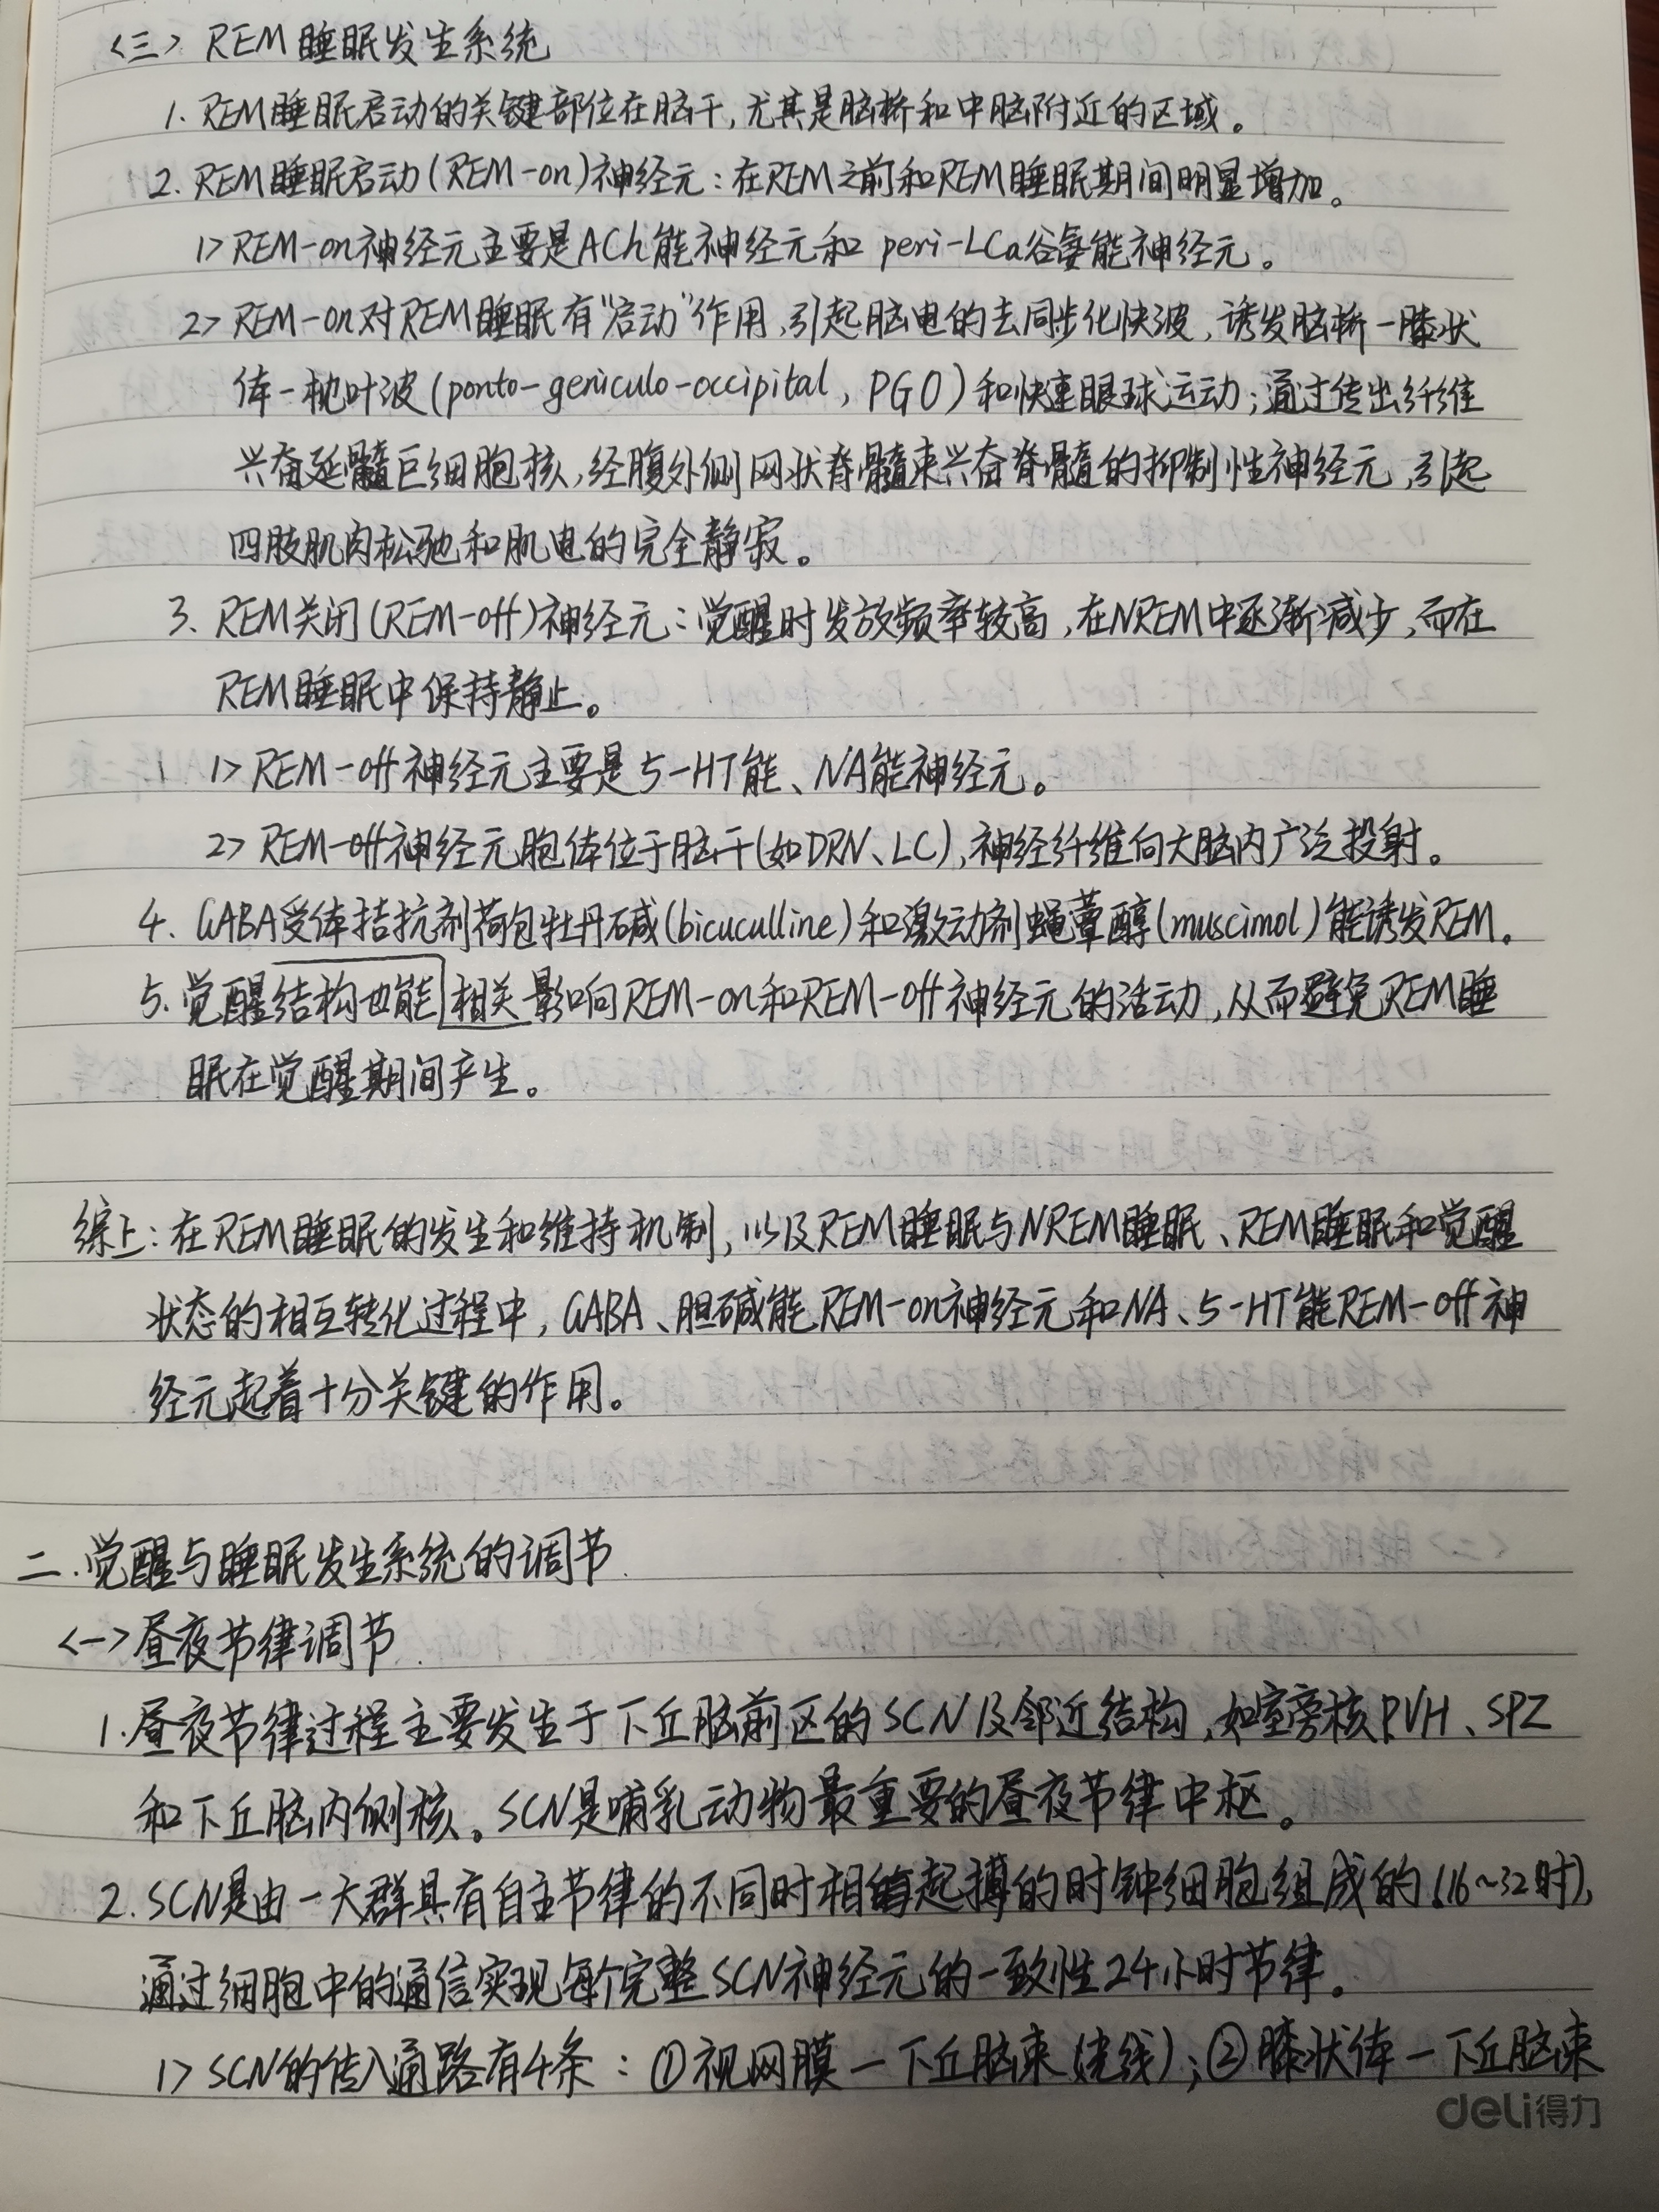 <三> REM睡眠发生系统
1. REM睡眠启动的关键部位在脑干,尤其是脑桥和中脑附近的区域。
2. REM睡眠启动(REM-on)神经元:在REM之前和REM睡眠期间明显增加。
1> REM-on神经元主要是ACh能神经元和 peri-LCa谷氨能神经元。
2> REM-on对REM睡眠有"启动"作用,引起脑电的去同步化快波,诱发脑桥-膝状
体-枕叶波(ponto-geniculo-occipital, PGO)和快速眼球运动;通过传出纤维
兴奋延髓巨细胞核,经腹外侧网状脊髓束兴奋脊髓的抑制性神经元,引起
四肢肌肉松驰和肌电的完全静寂。
3. REM关闭(REM-off)神经元:觉醒时发放频率较高,在NREM中逐渐减少,而在
REM睡眠中保持静止。
1> REM-off神经元主要是5-HT能、NA能神经元。
2> REM-off神经元胞体位于脑干(如DRN、LC),神经纤维向大脑内广泛投射。
4. GABA受体拮抗剂荷包牡丹碱(bicuculline)和激动剂蝇蕈醇(muscimol)能诱发REM。
5. 觉醒结构也能相关影响REM-on和REM-off神经元的活动,从而避免REM睡
眠在觉醒期间产生。
综上:在REM睡眠的发生和维持机制,以及REM睡眠与NREM睡眠、REM睡眠和觉醒
状态的相互转化过程中,GABA、胆碱能REM-on神经元和NA、5-HT能REM-off神
经元起着十分关键的作用。
二.觉醒与睡眠发生系统的调节.
<一>昼夜节律调节.
1.昼夜节律过程主要发生于下丘脑前区的SCN及邻近结构,如室旁核PVH、SPZ
和下丘脑内侧核。SCN是哺乳动物最重要的昼夜节律中枢。
2. SCN是由一大群具有自主节律的不同时相的起搏的时钟细胞组成的(16~32时),
通过细胞中的通信实现每个完整SCN神经元的一致性24小时节律。
1> SCN的传入通路有4条:①视网膜-下丘脑束(光线);②膝状体-下丘脑束
deli得力